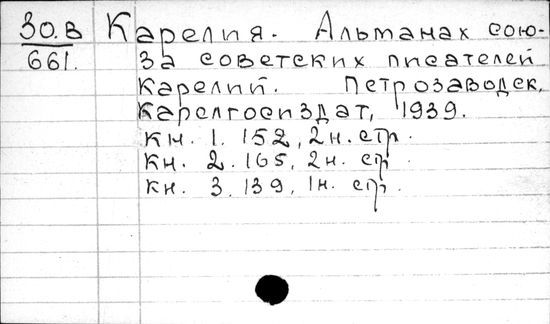 30.В Карелия. Альманах сою-
661. за советских писателей
Карелий. Петрозаводск,
Карелгосиздат, 1939.
кн. 1. 152, 2н. стр.
кн. 2. 165, 2н. стр.
кн. 3. 139, 1н. стр.